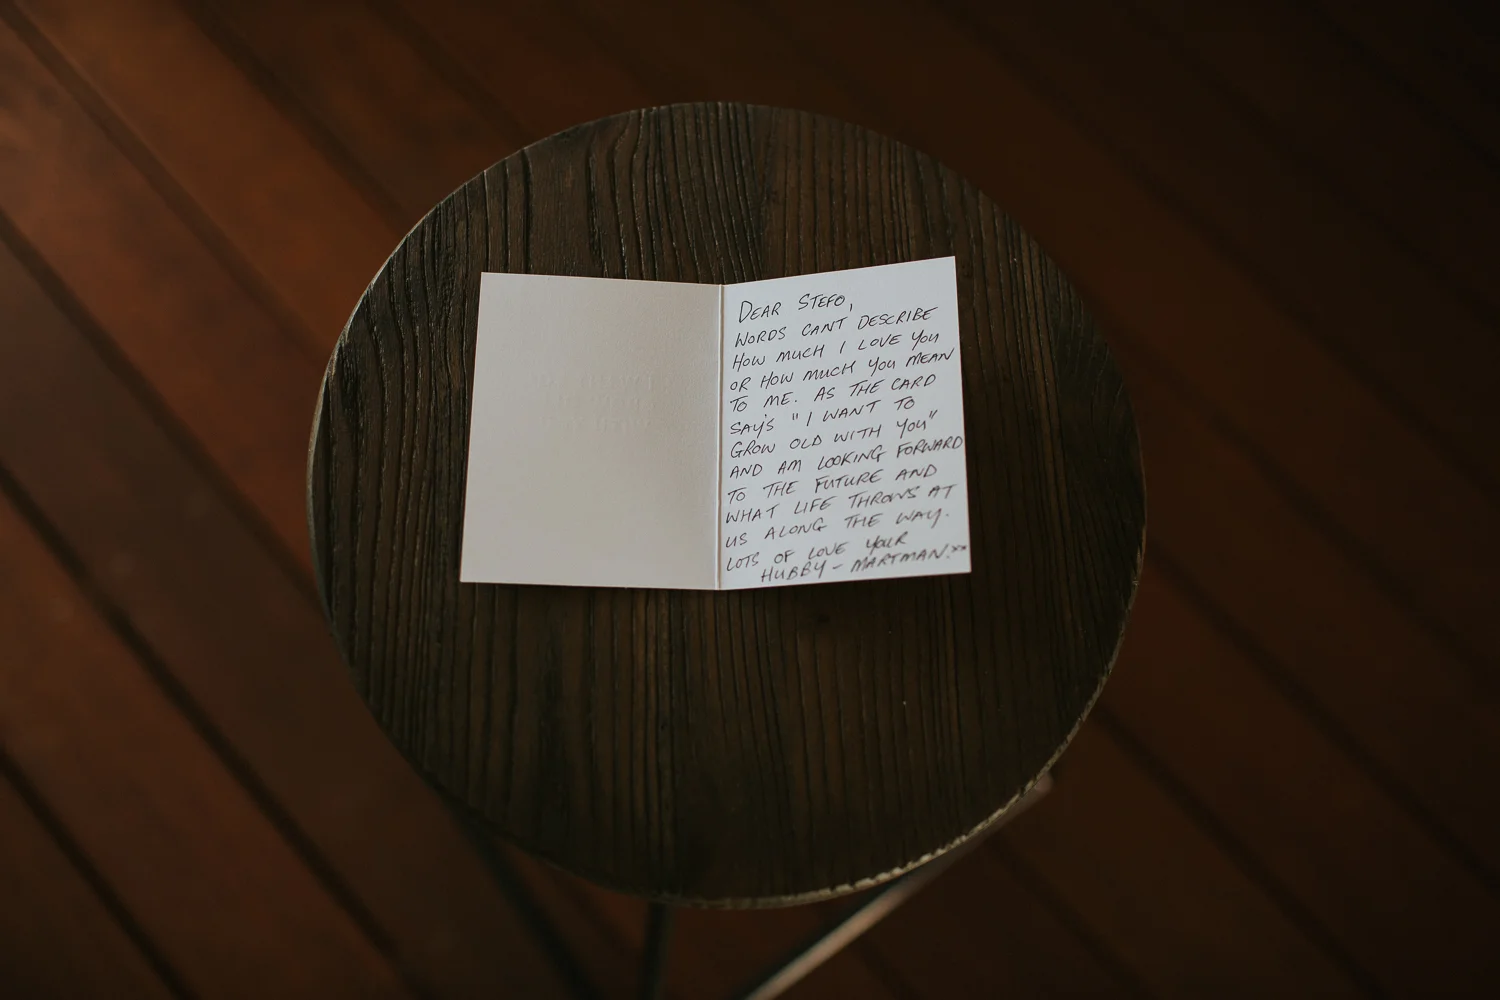 DEAR STEFO,
WORDS CANT DESCRIBE
HOW MUCH I LOVE YOU
OR HOW MUCH YOU MEAN
TO ME. AS THE CARD
SAY'S "I WANT TO
GROW OLD WITH YOU"
AND AM LOOKING FORWARD
TO THE FUTURE AND
WHAT LIFE THROWS AT
US ALONG THE WAY.
LOTS OF LOVE YOUR
HUBBY - MARTMAN.xx